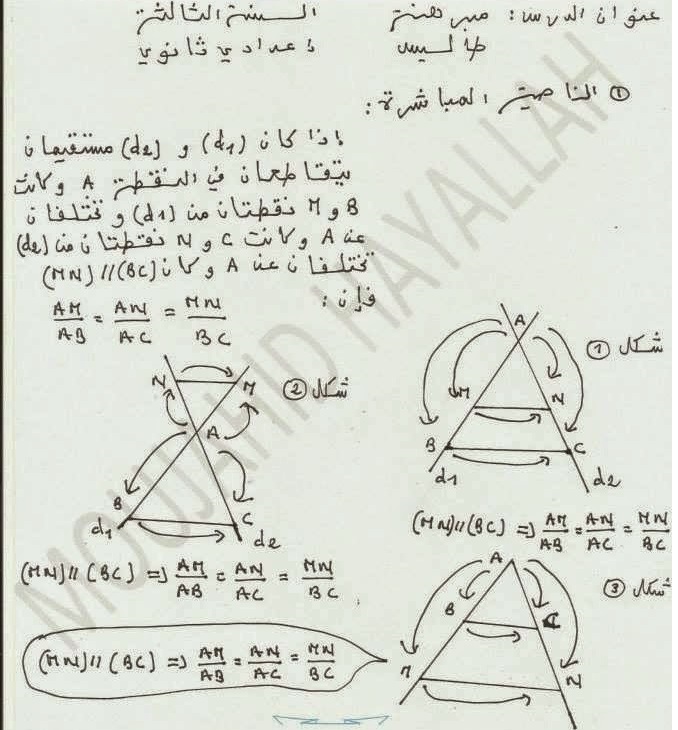 عنوان الدرس: مبرهنة طاليس
السنة الثالثة
إعدادي ثانوي
① الخاصية المباشرة:
إذا كان (d1) و (d2) مستقيمان
يتقاطعان في النقطة A وكانت
B و M نقطتان من (d1) و تختلفان
عن A وكانت C و N نقطتان من (d2)
تختلفان عن A وكان (MN)//(BC)
فإن:
AM/AB = AN/AC = MN/BC
شكل ①
A
M
N
B
C
d1
d2
(MN)//(BC) => AM/AB = AN/AC = MN/BC
شكل ②
N
M
A
B
C
d1
d2
(MN)//(BC) => AM/AB = AN/AC = MN/BC
شكل ③
A
B
C
M
N
(MN)//(BC) => AM/AB = AN/AC = MN/BC
MOUJAHID HAYALLAH